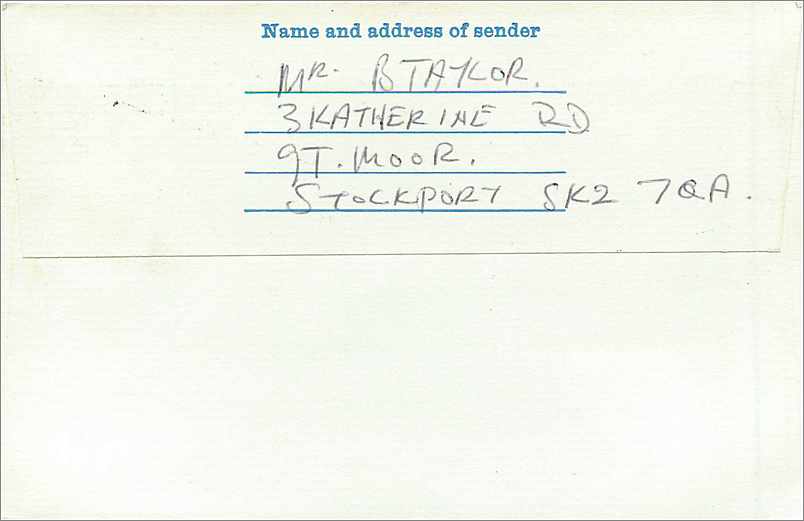 Name and address of sender
Mr. B TAYLOR.
3 KATHERINE RD
GT. MOOR.
STOCKPORT SK2 7QA.